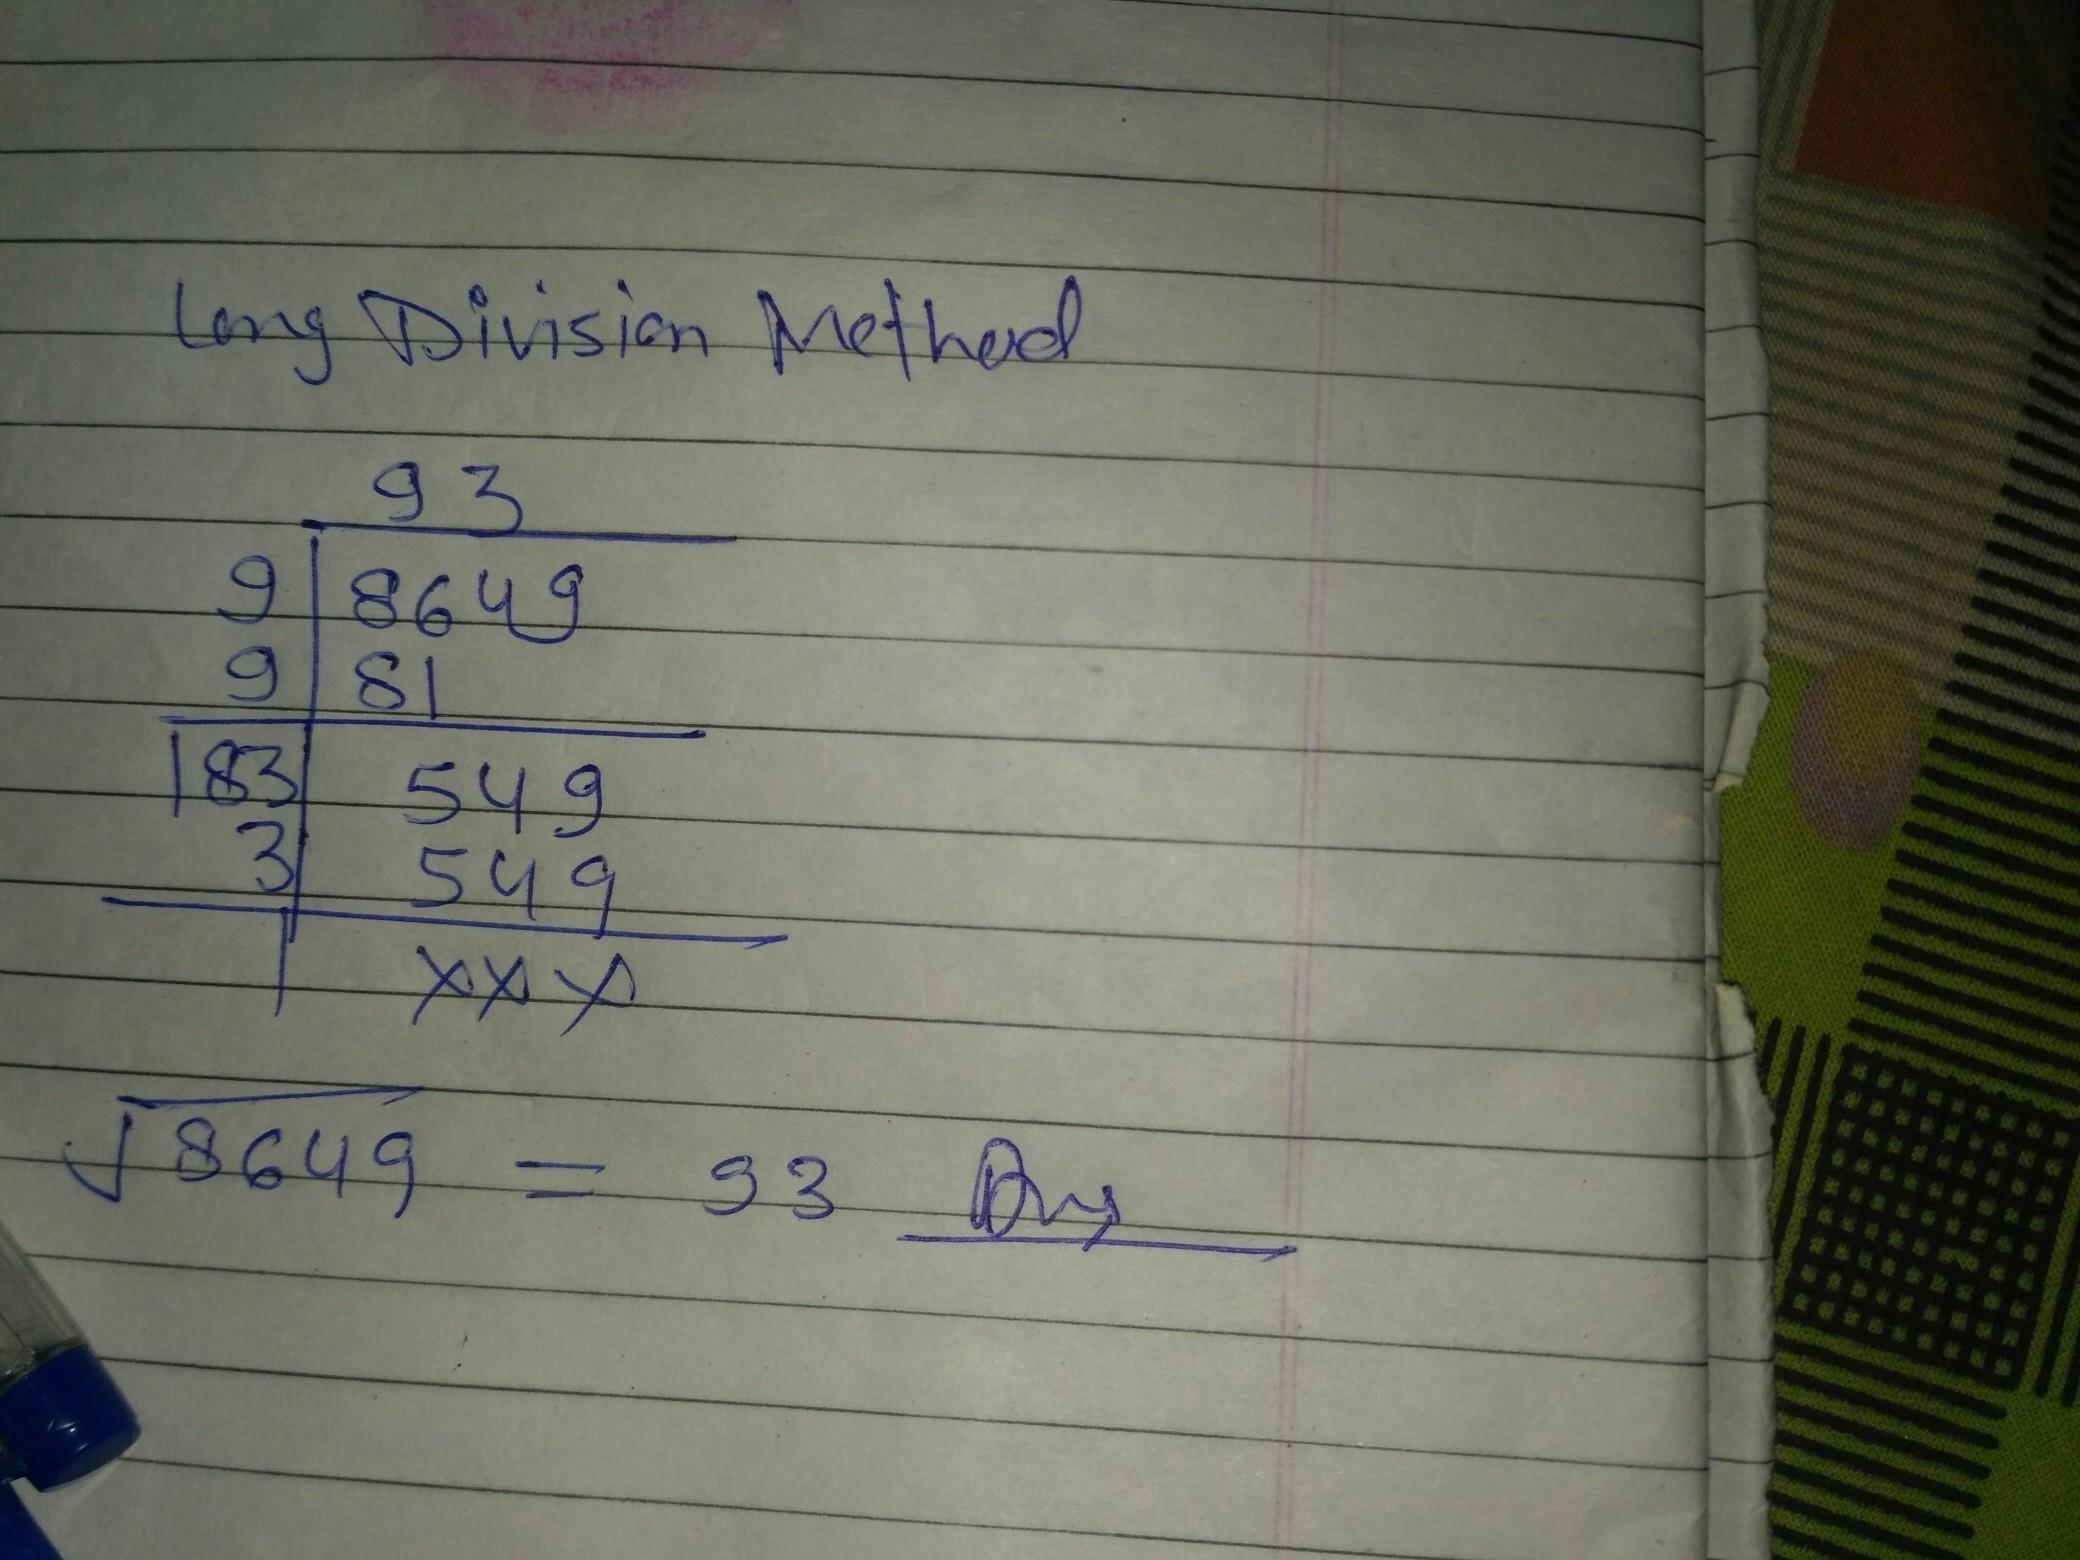 Long Division Method
93
9 8649
9 81
183 549
3 549
xxx
√8649 = 93 Ans